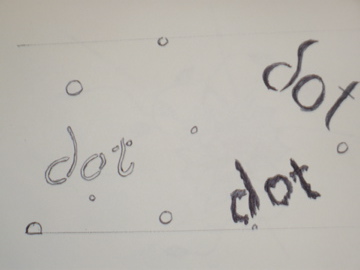 dot
dot
dot